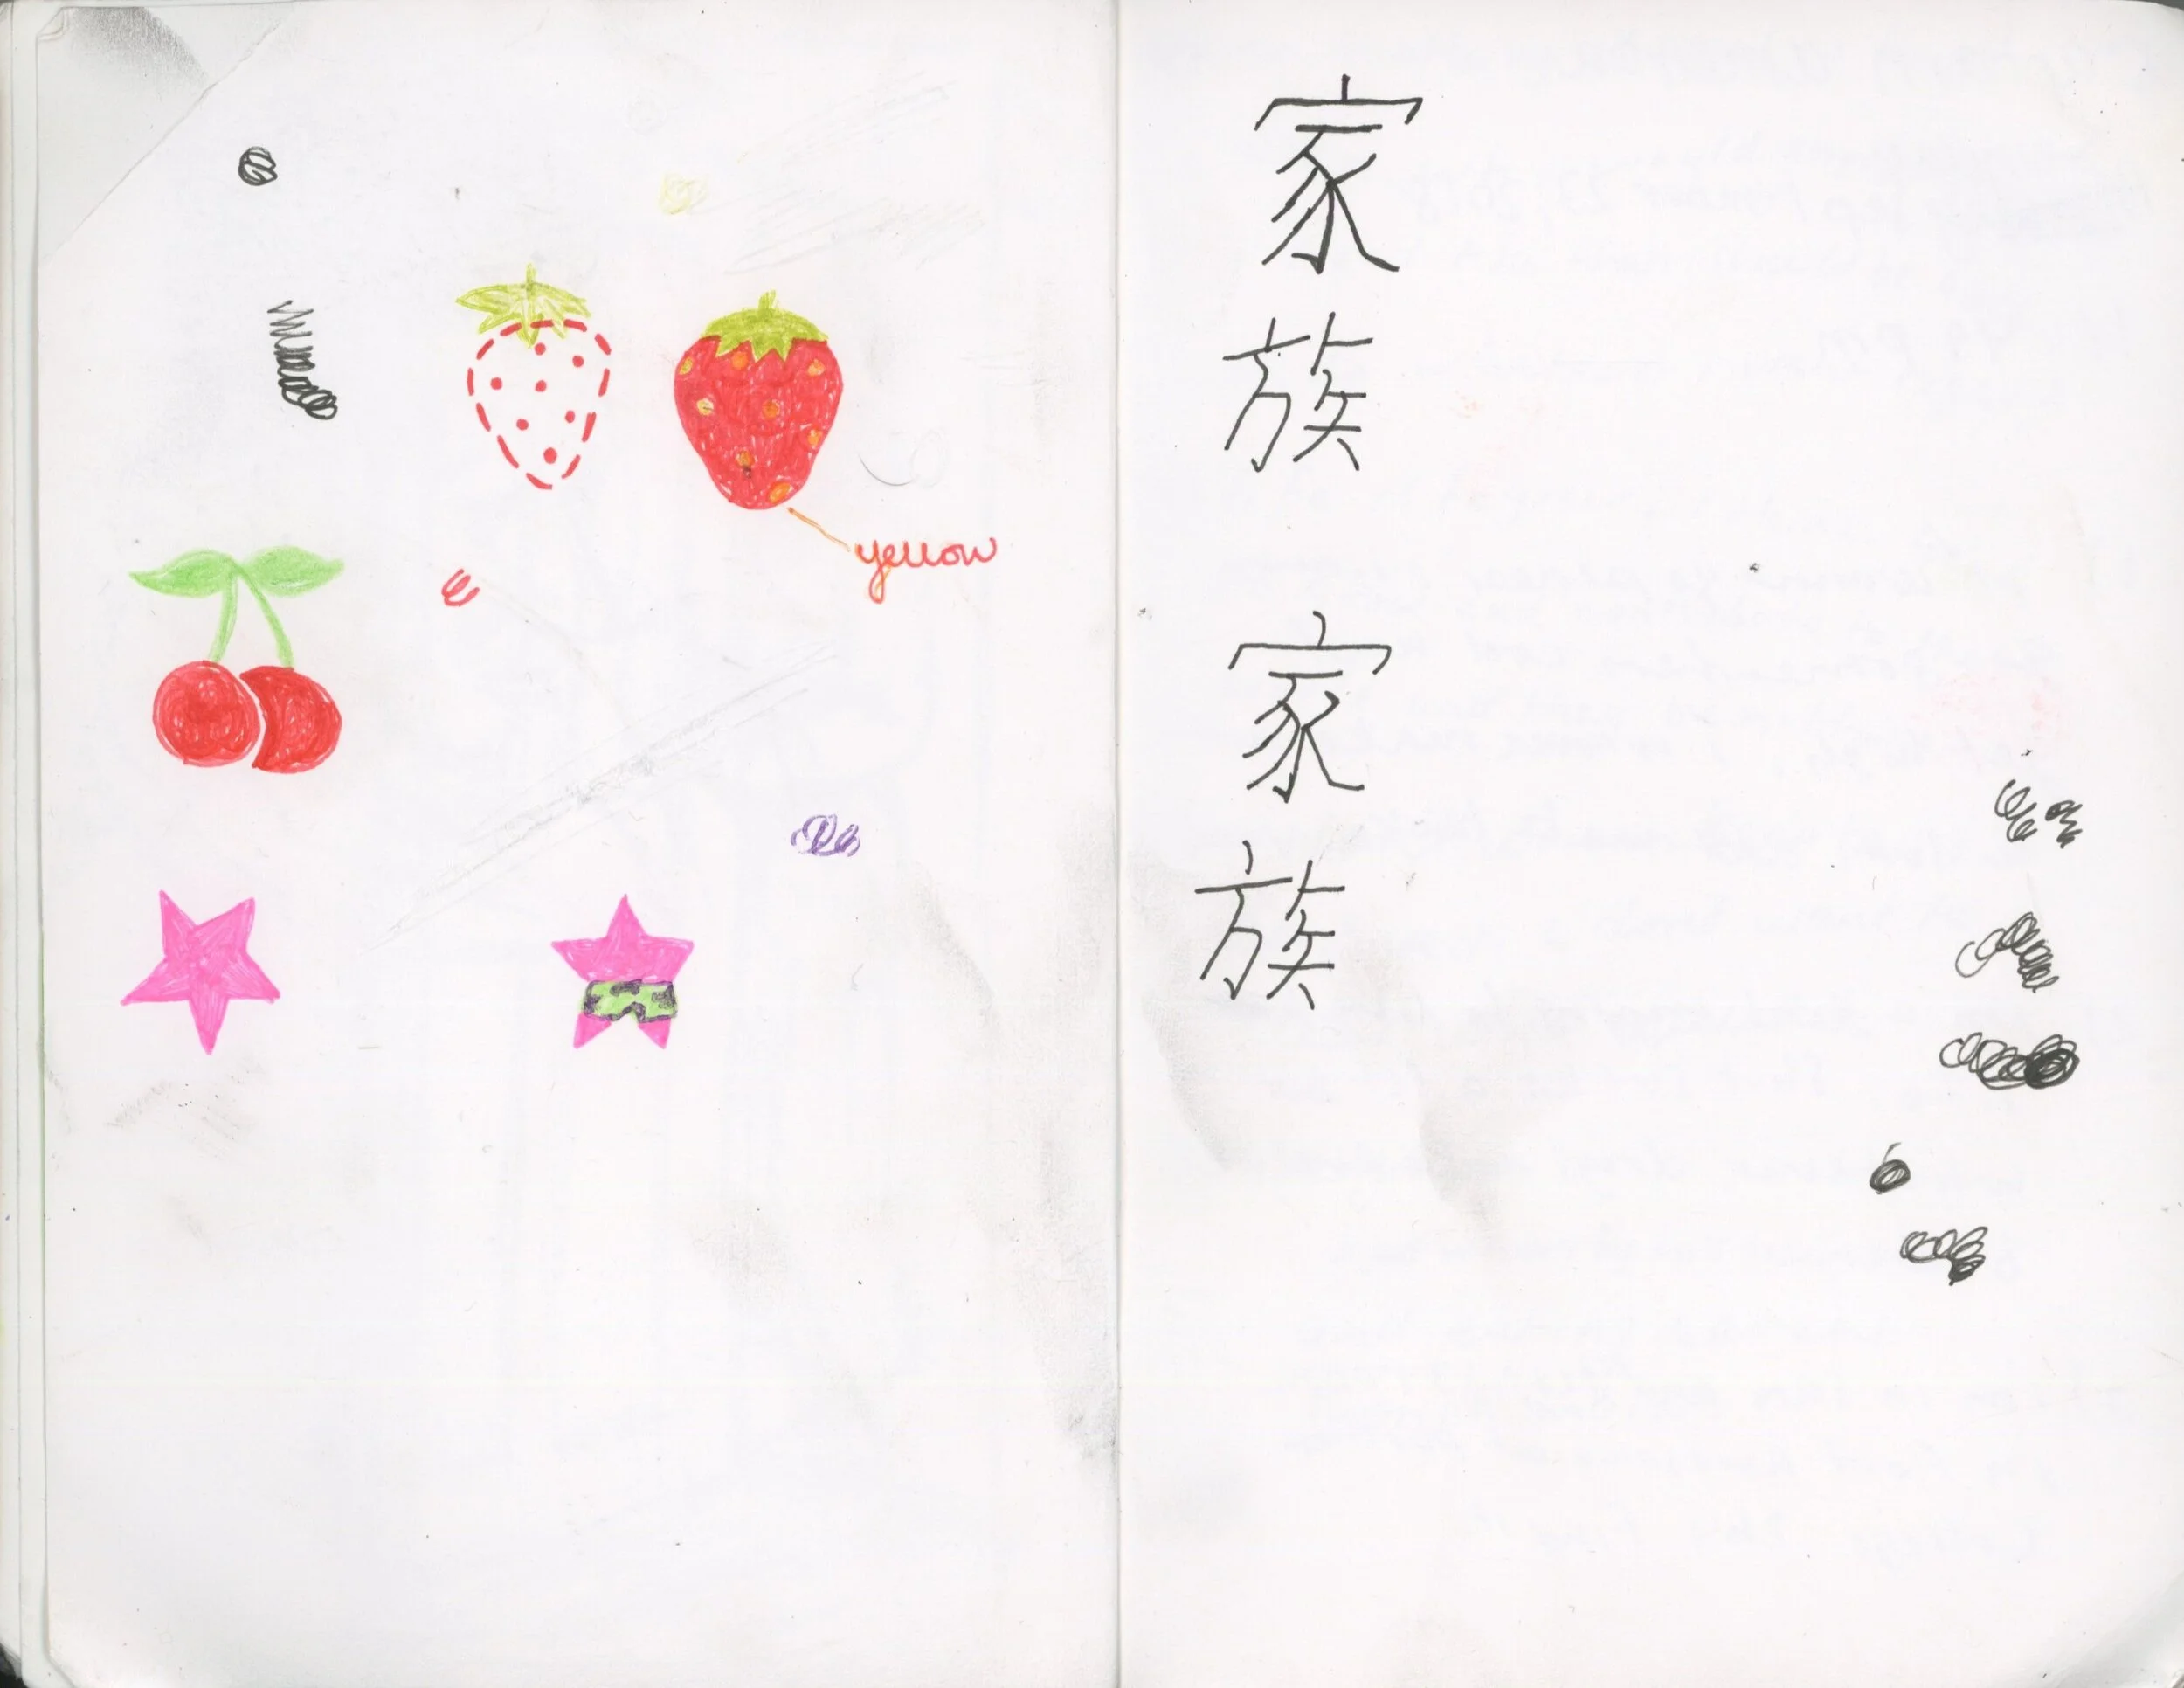 yellow
家
族
家
族